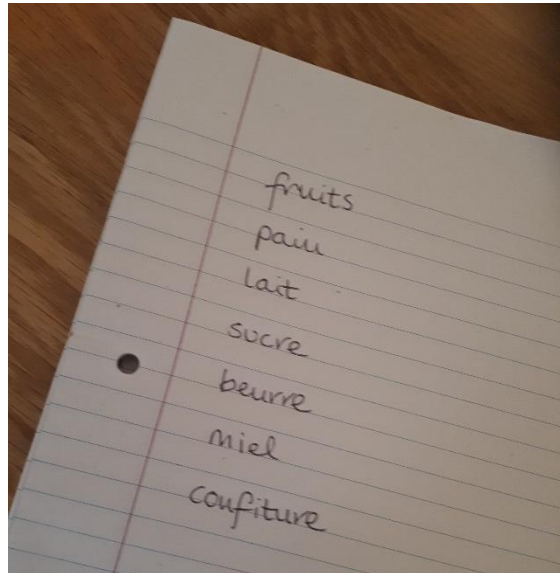 fruits
pain
lait
sucre
beurre
miel
confiture